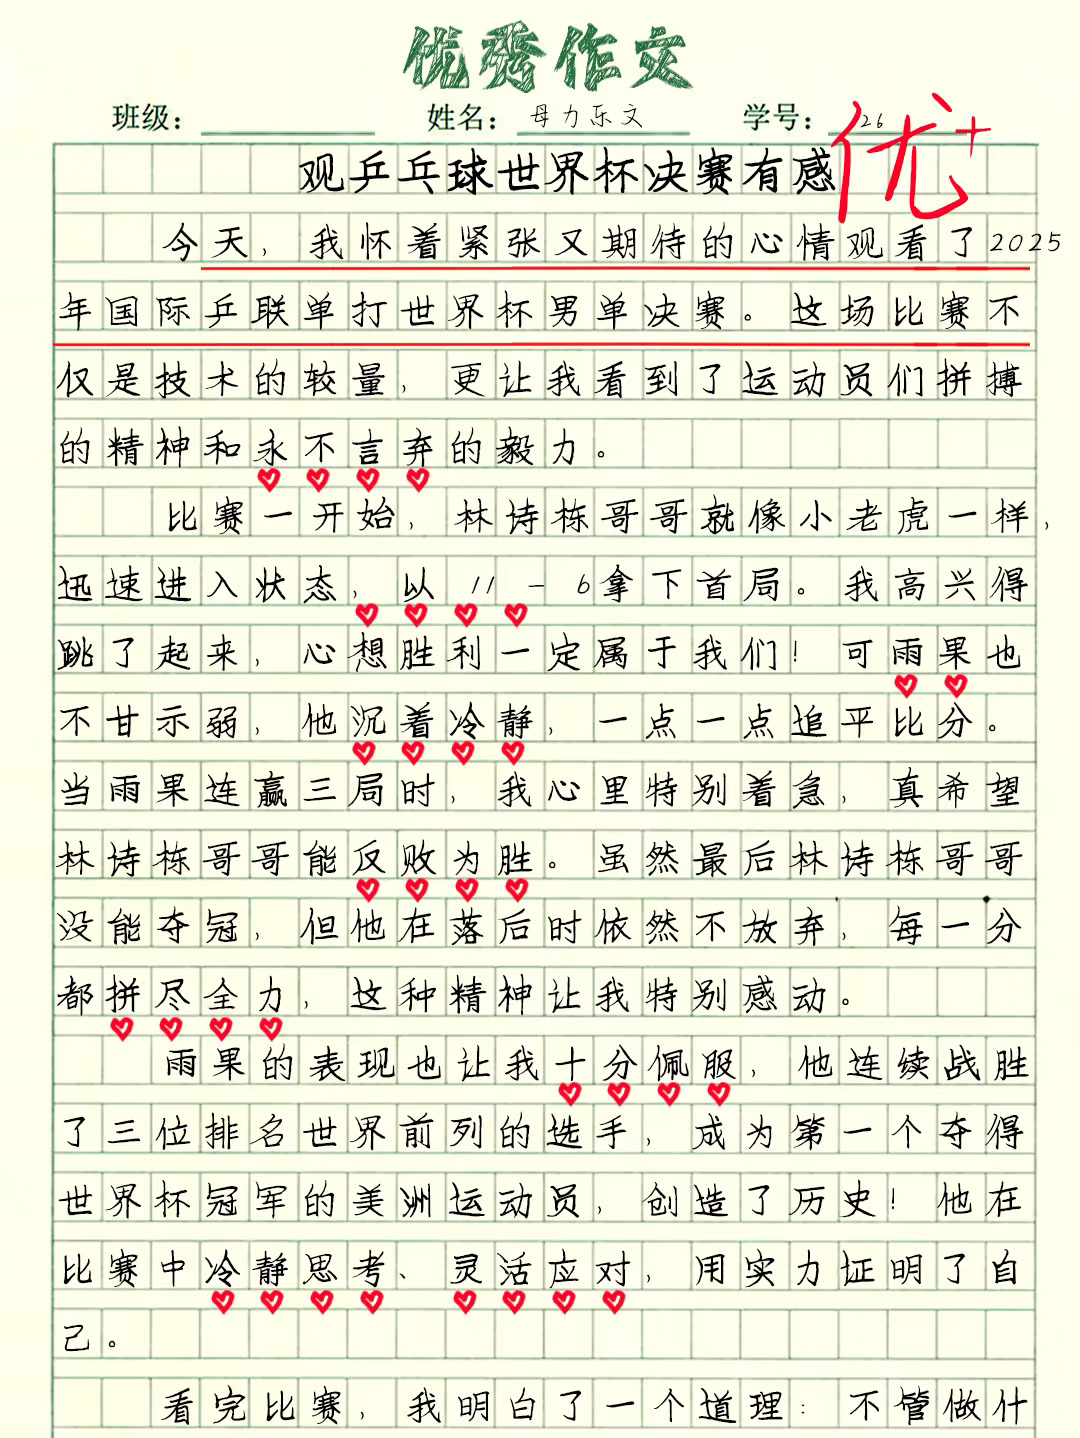 优秀作文
班级： 姓名：母力乐文 学号：26
优+
观乒乓球世界杯决赛有感
今天，我怀着紧张又期待的心情观看了2025
年国际乒联单打世界杯男单决赛。这场比赛不
仅是技术的较量，更让我看到了运动员们拼搏
的精神和永不言弃的毅力。
比赛一开始，林诗栋哥哥就像小老虎一样，
迅速进入状态，以11-6拿下首局。我高兴得
跳了起来，心想胜利一定属于我们！可雨果也
不甘示弱，他沉着冷静，一点一点追平比分。
当雨果连赢三局时，我心里特别着急，真希望
林诗栋哥哥能反败为胜。虽然最后林诗栋哥哥
没能夺冠，但他在落后时依然不放弃，每一分
都拼尽全力，这种精神让我特别感动。
雨果的表现也让我十分佩服，他连续战胜
了三位排名世界前列的选手，成为第一个夺得
世界杯冠军的美洲运动员，创造了历史！他在
比赛中冷静思考、灵活应对，用实力证明了自
己。
看完比赛，我明白了一个道理：不管做什